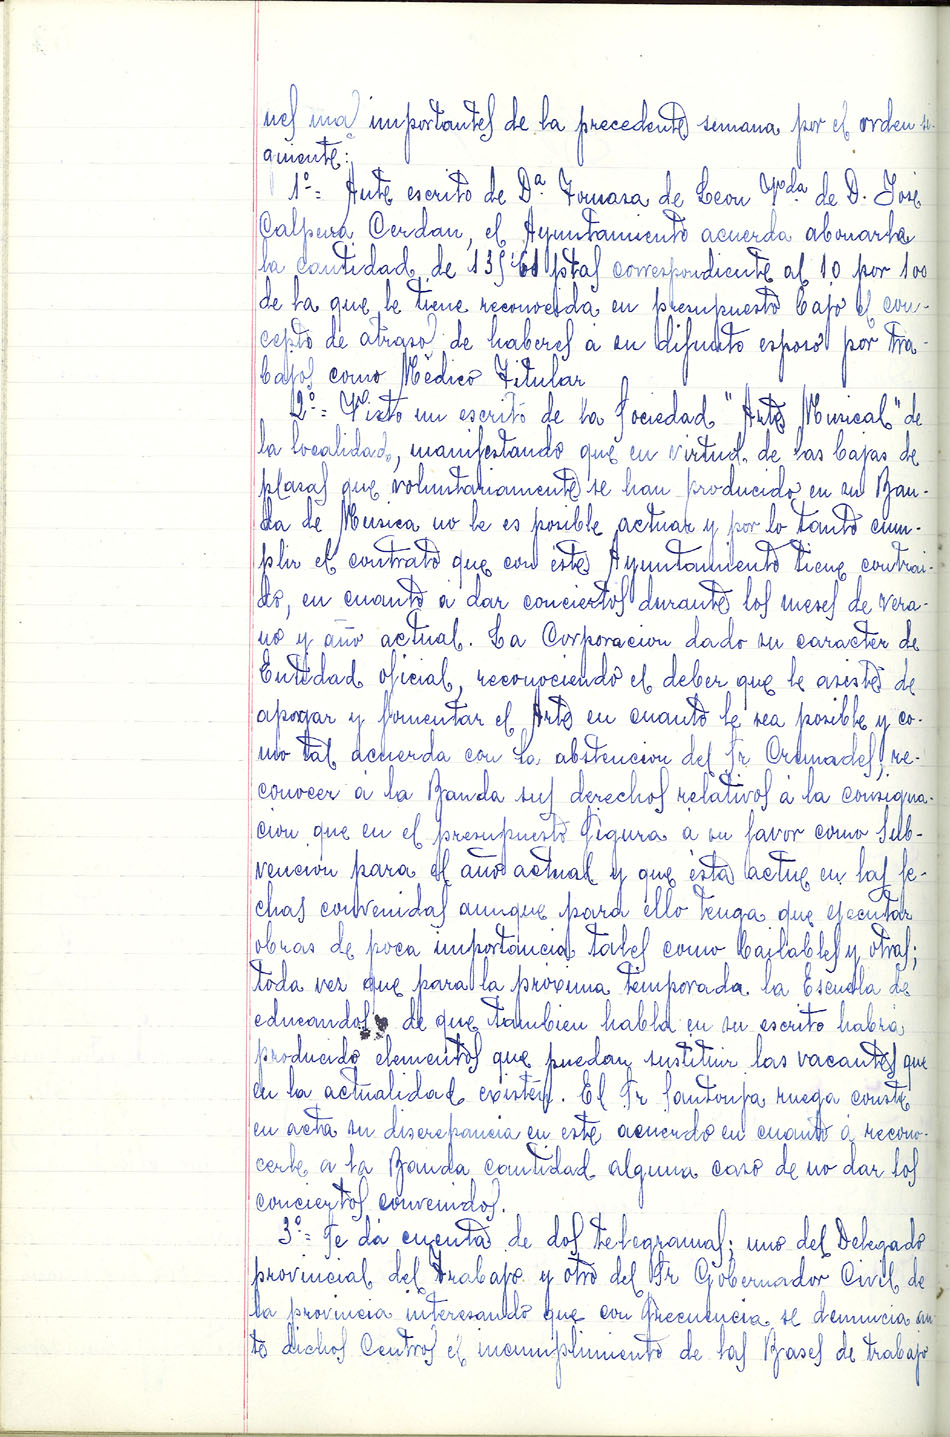 nes mas importantes de la precedente semana por el orden si-
guiente:
1º= Ante escrito de Dª Tomasa de Leon Vda de D. José
Calpena Cerdan, el Ayuntamiento acuerda abonarle
la cantidad de 135'61 ptas correspondiente al 10 por 100
de la que le tiene reconocida en presupuesto bajo el con-
cepto de atrasos de haberes a su difunto esposo por tra-
bajos como Médico Titular
2º= Visto un escrito de la Sociedad "Arte Musical" de
la localidad, manifestando que en virtud de las bajas de
plasas que voluntariamente se han producido en su Ban-
da de Musica no le es posible actuar y por lo tanto cum-
plir el contrato que con este Ayuntamiento tiene contrai-
do, en cuanto a dar conciertos durante los meses de vera-
no y año actual. La Corporacion dado su caracter de
Entidad oficial, reconociendo el deber que le asiste de
apoyar y fomentar el Arte en cuanto le sea posible y co-
mo tal acuerda con la abstencion del Sr Cremades, re-
conocer á la Banda sus derechos relativos a la consigna-
cion que en el presupuesto figura a su favor como Sub-
vencion para el año actual y que esta actue en las fe-
chas convenidas aunque para ello tenga que ejecutar
obras de poca importancia tales como bailables y otras;
toda vez que para la proxima temporada la Escuela de
educandos de que tambien habla en su escrito habrá
producido elementos que puedan sustituir las vacantes que
en la actualidad existen. El Sr Santonja ruega conste
en acta su discrepancia en este acuerdo en cuanto á recono-
cerle a la Banda cantidad alguna caso de no dar los
conciertos convenidos.
3º= Se da cuenta de dos telegramas; uno del Delegado
provincial del Trabajo y otro del Sr Gobernador Civil de
la provincia interesando que con frecuencia se denuncia an-
te dichos Centros el incumplimiento de las Bases de trabajo